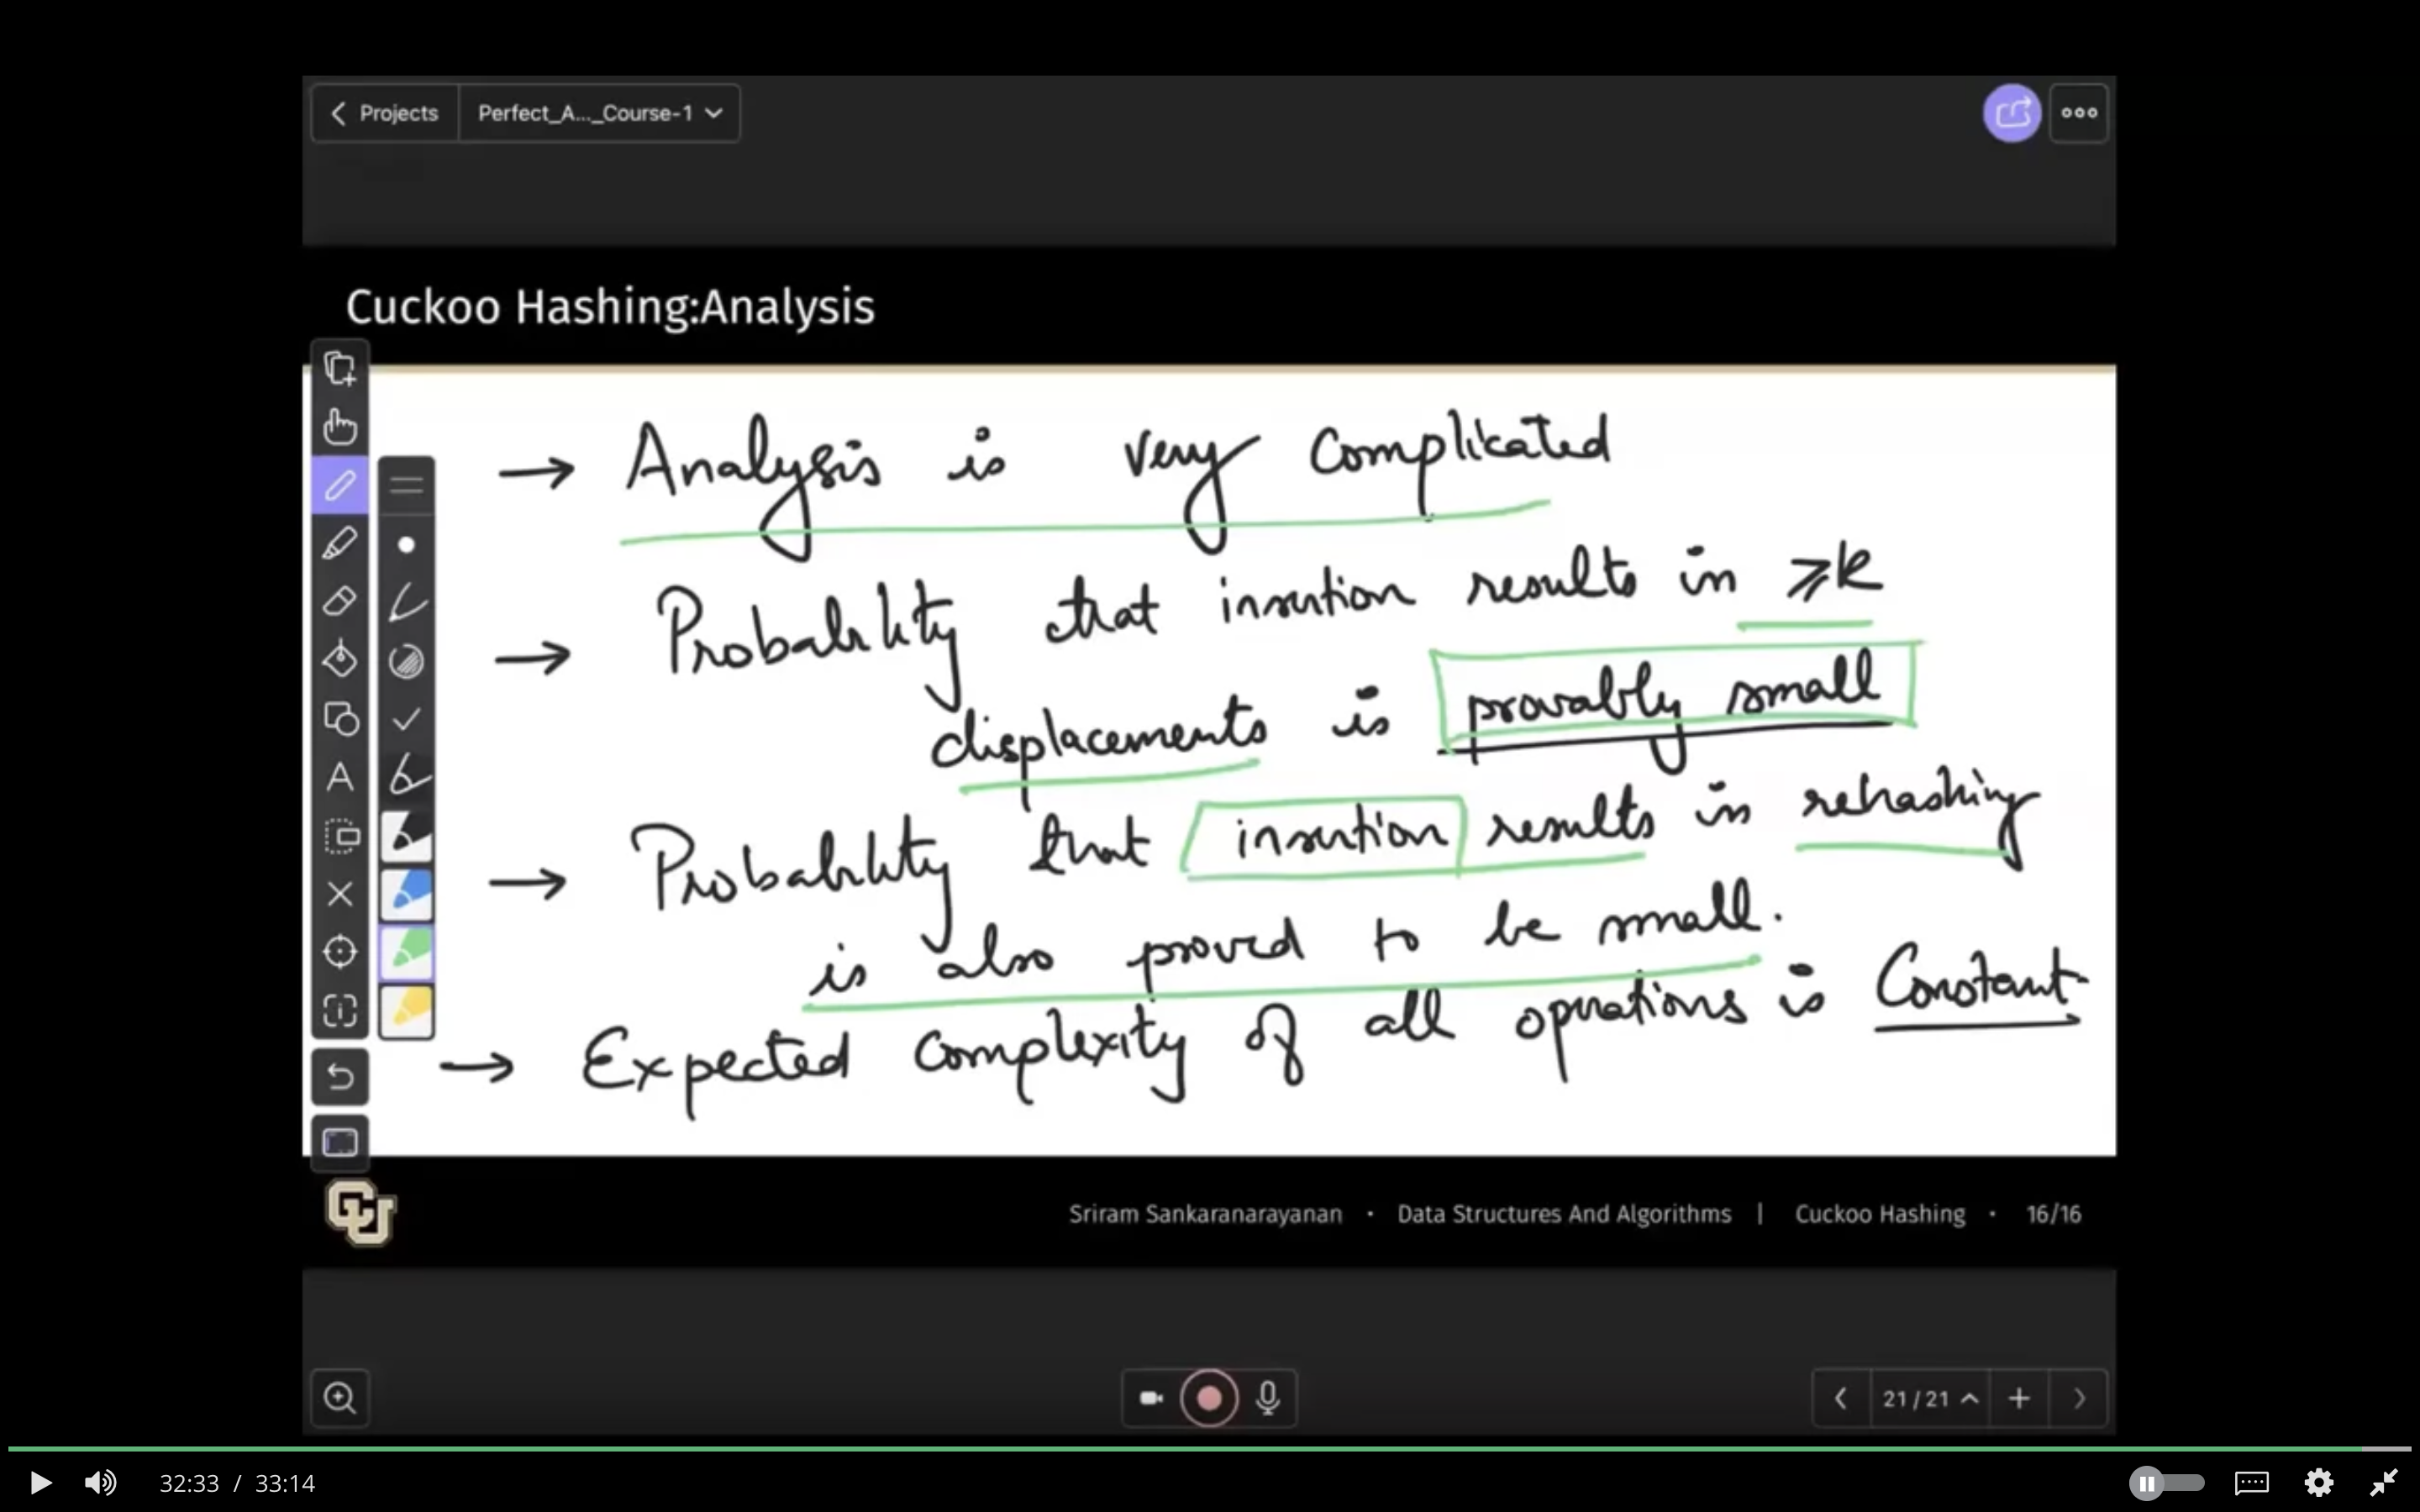 Projects
Perfect_A..._Course-1
Cuckoo Hashing:Analysis
→ Analysis is very complicated
→ Probability that insertion results in ⩾k
displacements is provably small
→ Probability that insertion results in rehashing
is also proved to be small.
→ Expected complexity of all operations is Constant
CU
Sriram Sankaranarayanan · Data Structures And Algorithms | Cuckoo Hashing · 16/16
21/21
32:33 / 33:14